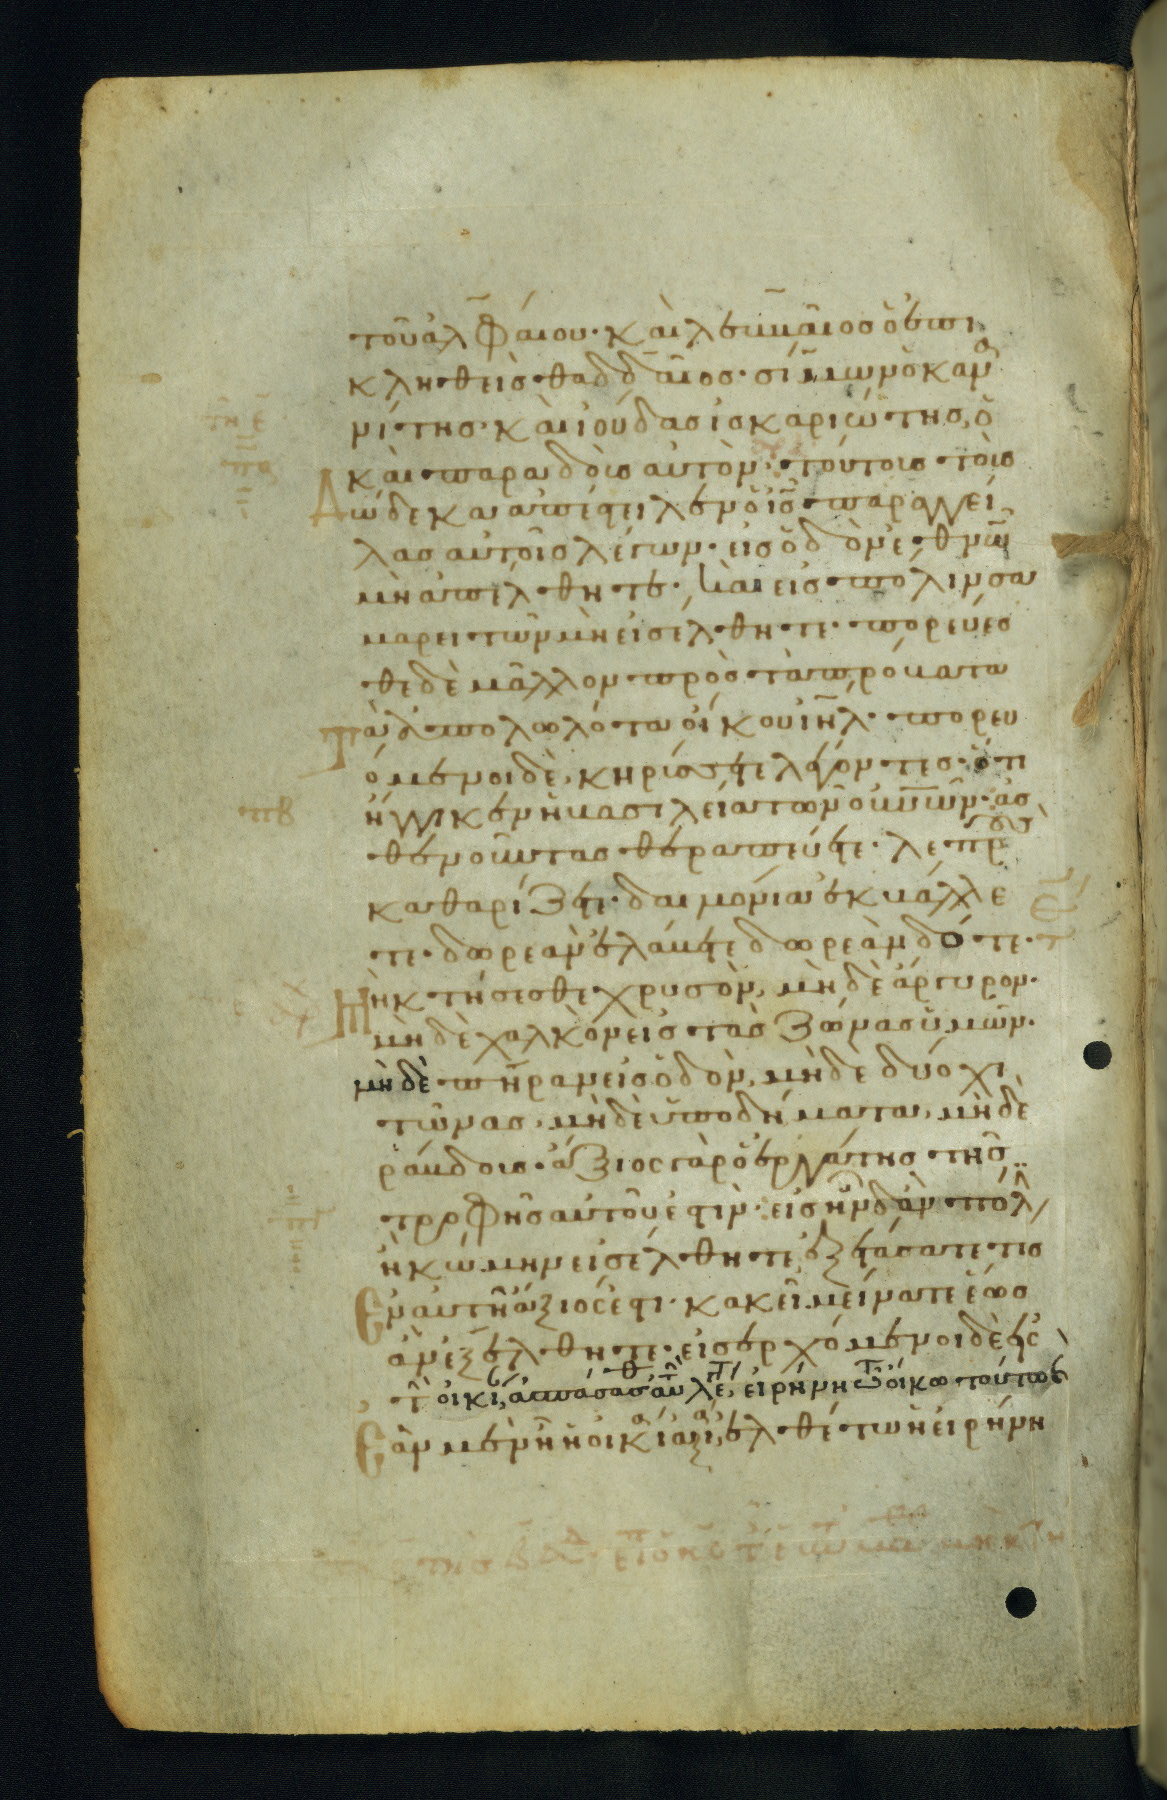 τοῦ ἀλφαίου· καὶ λεββαῖος ὁ ἐπι
κληθεὶς θαδδαῖος· σίμων ὁ καν
νίτης· καὶ ἰούδας ἰσκαριώτης, ὁ
καὶ παραδοὺς αὐτόν· τούτους τοὺς
Δώδεκα ἀπέστειλεν ὁ ις παραγγεί
λας αὐτοῖς λέγων· εἰς ὁδὸν ἐθνῶν
μὴ ἀπέλθητε· καὶ εἰς πόλιν σα
μαρειτῶν μὴ εἰσέλθητε· πορεύεσ
θε δὲ μᾶλλον πρὸς τὰ πρόβατα
Τὰ ἀπολωλότα οἴκου ιηλ· πορευ
όμενοι δὲ, κηρύσσετε λέγοντες· ὅτι
ἤγγικεν ἡ βασιλεία τῶν οὐνῶν· ἀσ
θενοῦντας θεραπεύετε· λεπροὺς
καθαρίζετε· δαιμόνια ἐκβάλλε
τε· δωρεὰν ἐλάβετε δωρεὰν δότε·
Μὴ κτήσεσθε χρυσὸν, μὴ δὲ ἄργυρον·
μὴ δὲ χαλκὸν εἰς τὰς ζώνας ὑμῶν·
μὴ δὲ πήραν εἰς ὁδὸν, μὴ δὲ δύο χι
τῶνας, μὴ δὲ ὑποδήματα, μὴ δὲ
ῥάβδους· ἄξιος γὰρ ὁ ἐργάτης τῆς
τροφῆς αὐτοῦ ἐστιν· εἰς ἣν δ' ἂν πόλ
ἢ κώμην εἰσέλθητε ἐξετάσατε τίς
Ἐν αὐτῇ ἄξιός ἐστι· κἀκεῖ μείνατε ἕως
ἂν ἐξέλθητε· εἰσερχόμενοι δὲ εἰς
τ οἰκί, ἀσπάσασθ αὐτ λέγ, εἰρήνη τῶ οἴκω τούτω
Ἐὰν μὲν ἦ ἡ οἰκία ἀξία, ἐλθέτω ἡ εἰρήνη